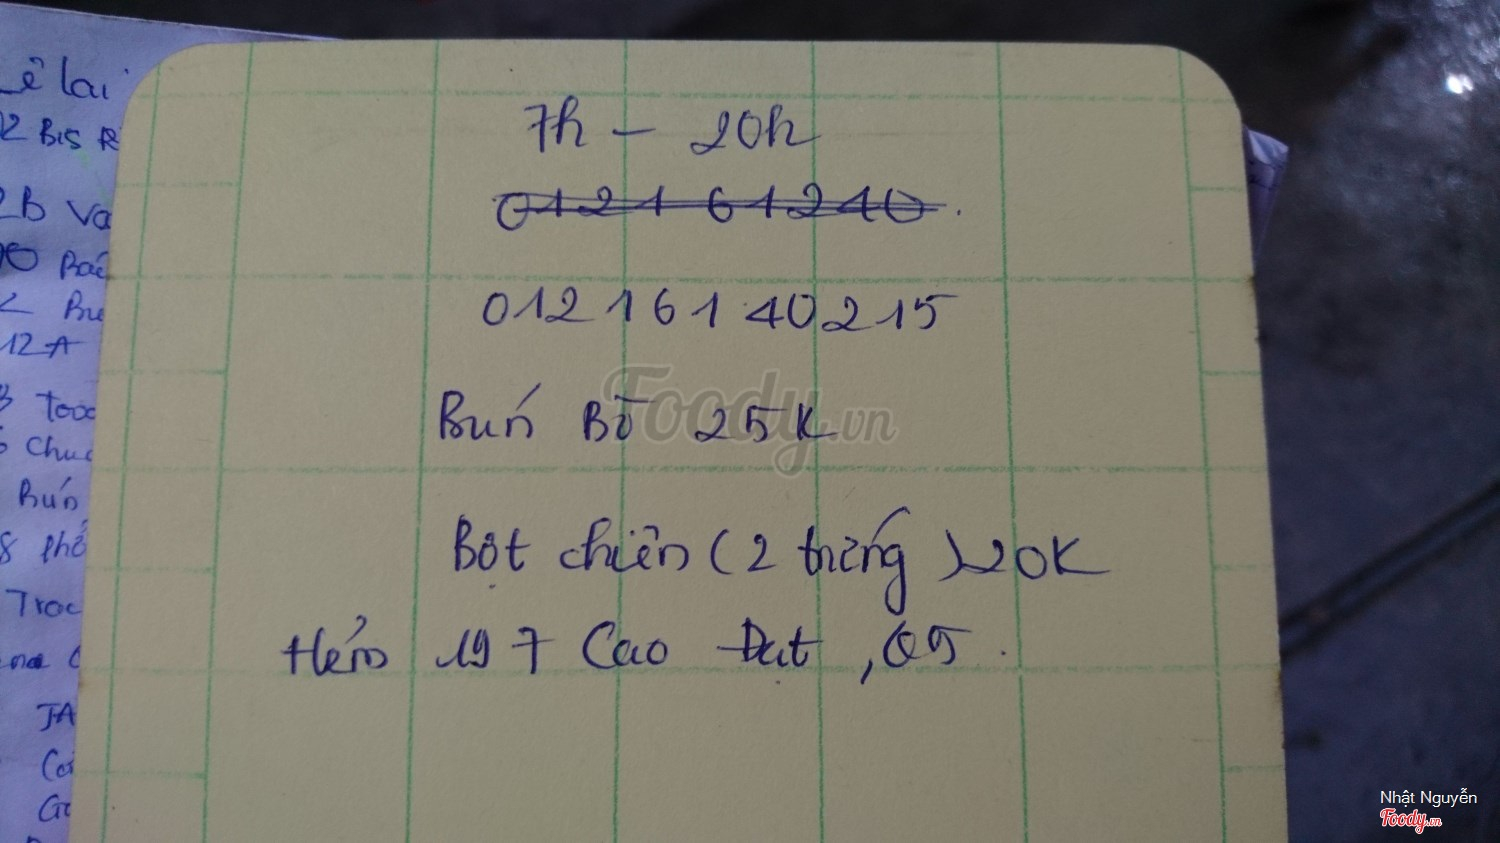 ê lai
2 BIS R
2B Va
Bắc
12A
Chu
Bún
8 phở
Troc
JA
7h - 20h
0121 61240.
0121 6 1 40215
Bún Bò 25K
Bột chiên (2 trứng) 20K
Hẻm 197 Cao Đạt, Q5.
Foody.vn
Nhật Nguyễn
Foody.vn